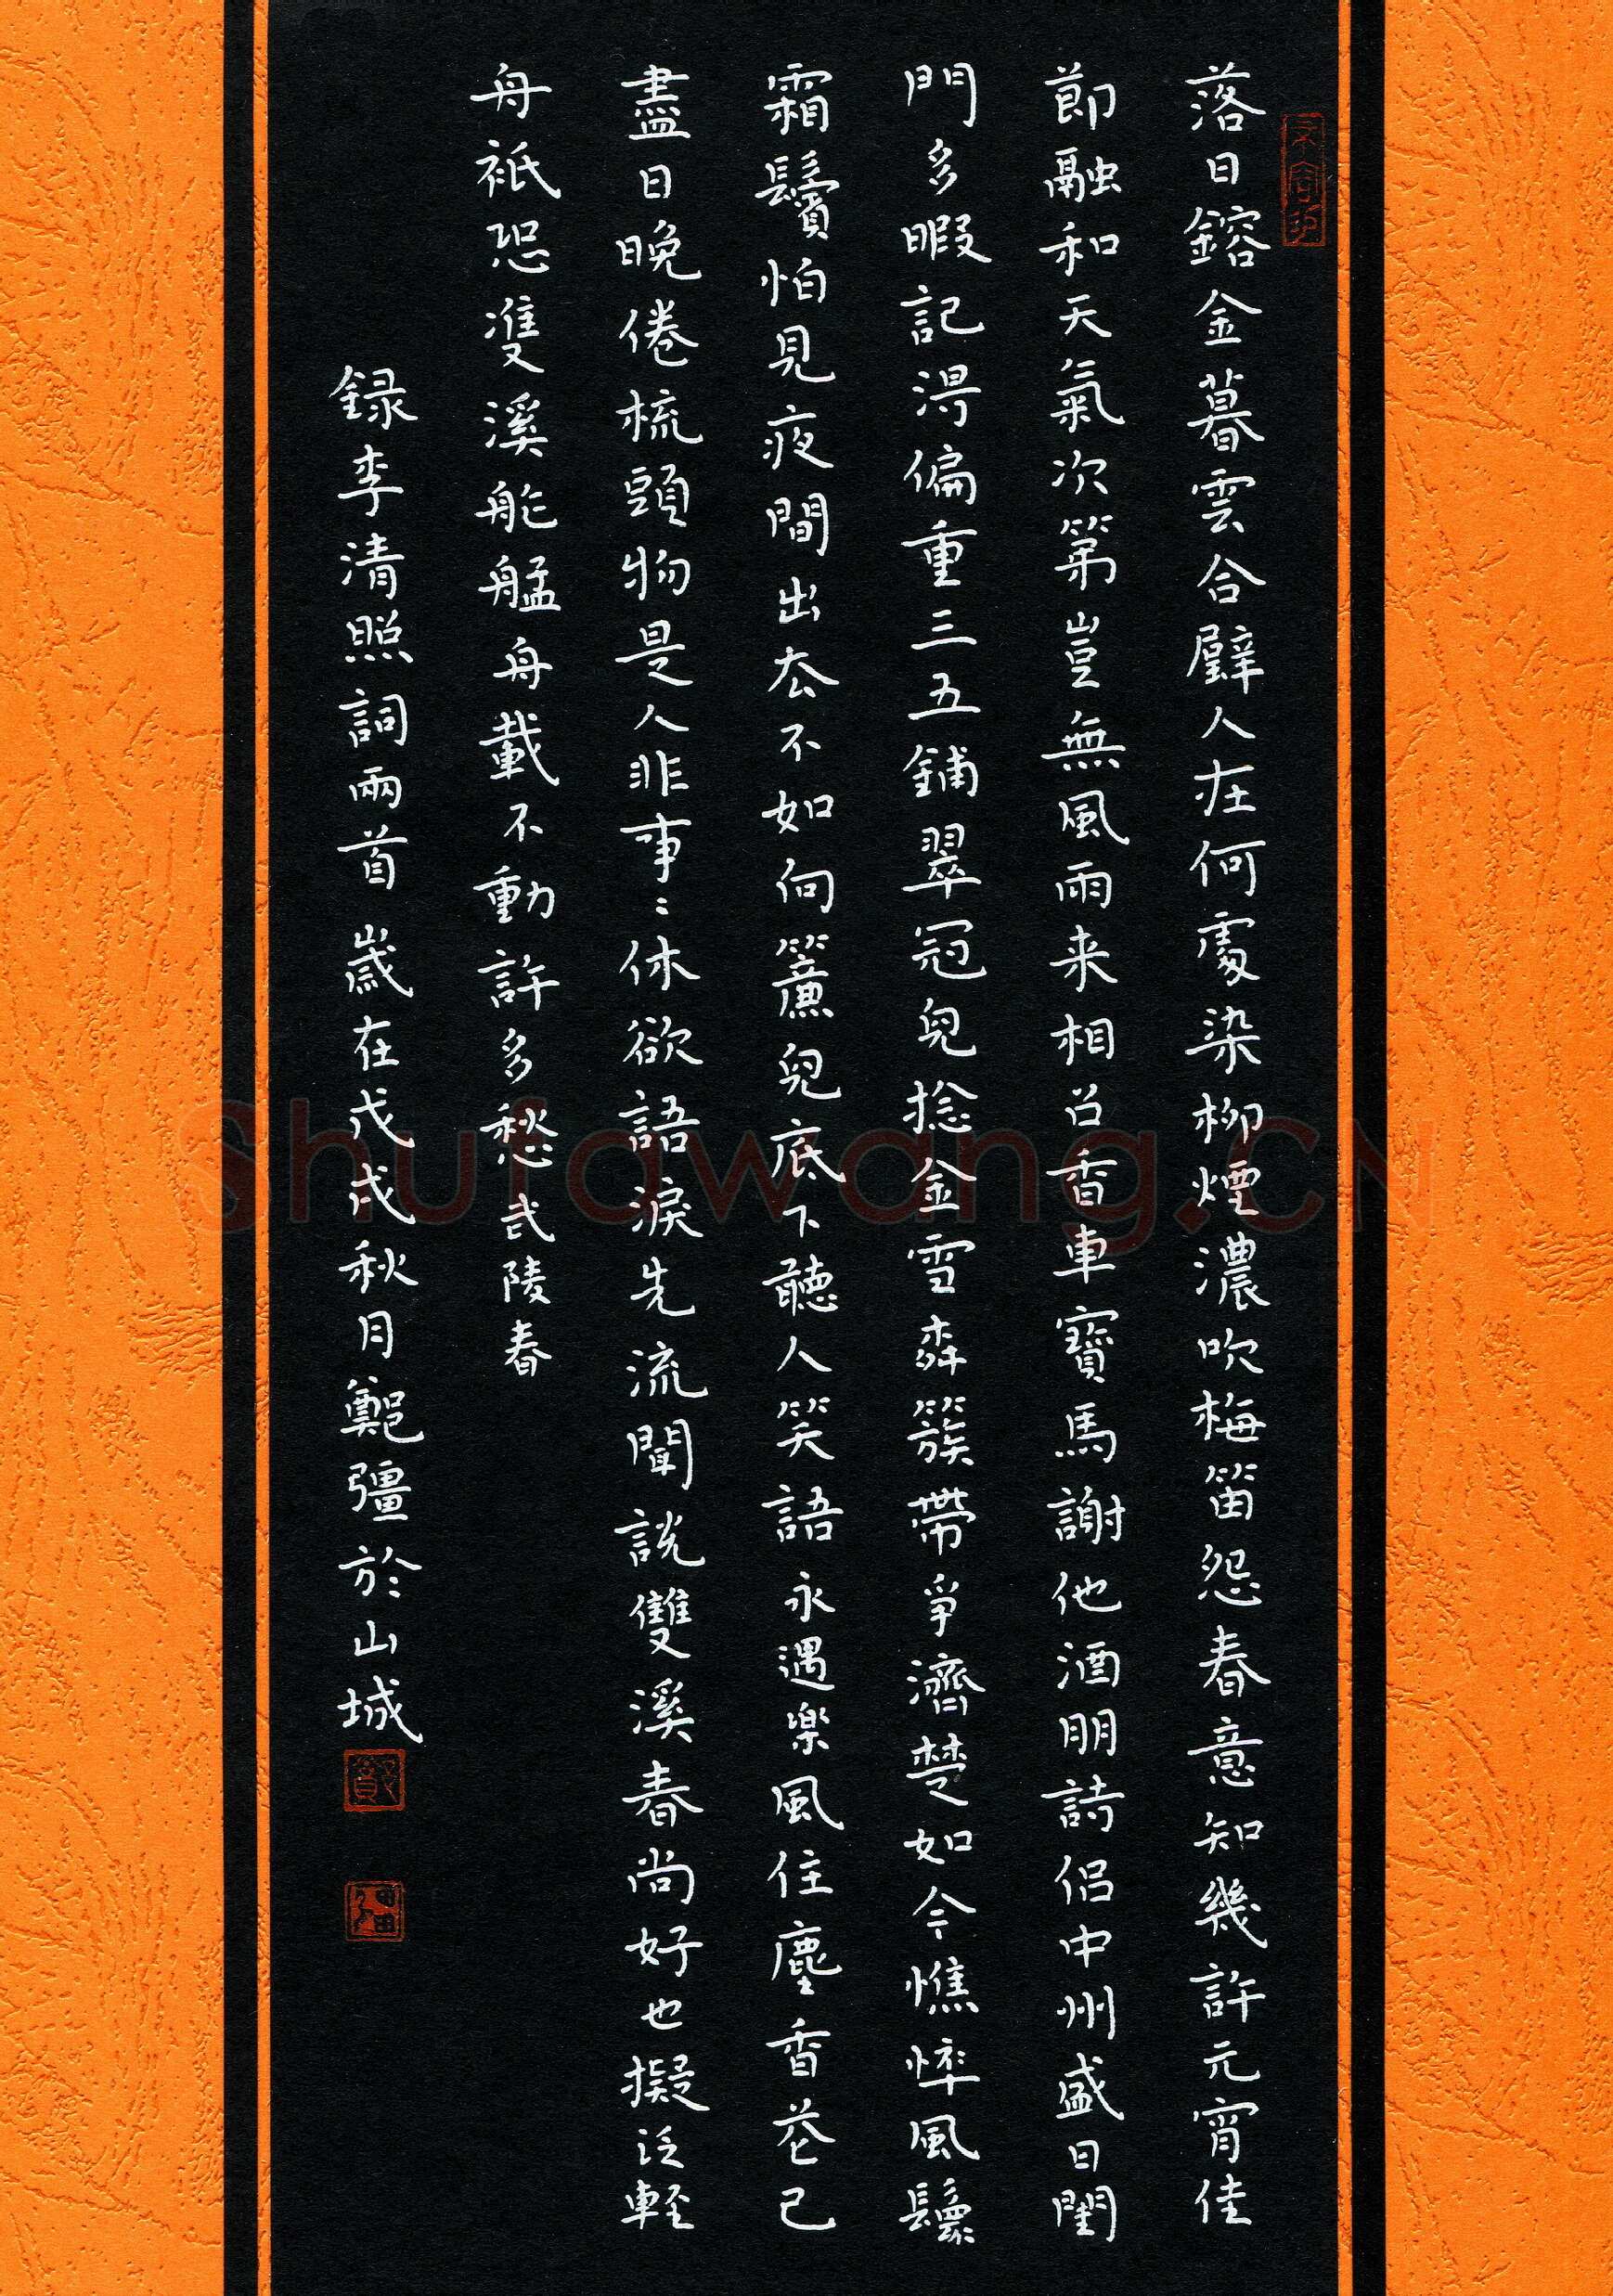 落日鎔金暮雲合璧人在何處染柳煙濃吹梅笛怨春意知幾許元宵佳
節融和天氣次第豈無風雨来相召香車寶馬謝他酒朋詩侶中州盛日閨
門多暇記得偏重三五鋪翠冠兒捻金雪柳簇帶爭濟楚如今憔悴風鬟
霜鬢怕見夜間出去不如向簾兒底下聽人笑語永遇樂風住塵香花已
盡日晚倦梳頭物是人非事〻休欲語淚先流聞說雙溪春尚好也擬泛輕
舟衹恐雙溪舴艋舟載不動許多愁武陵春
錄李清照詞兩首歲在戊戌秋月鄭彊於山城
Shufawang.CN